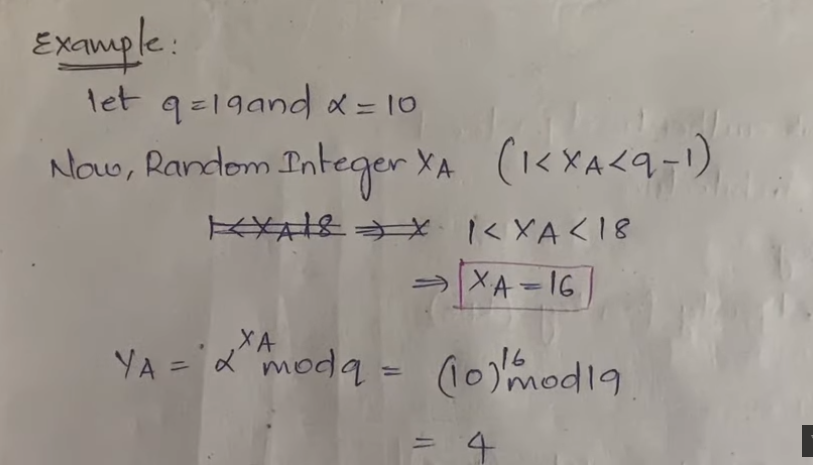 Example:
let q=19 and α = 10
Now, Random Integer XA (1< XA<q-1)
1<XA18 ⇒ X 1< XA < 18
⇒ XA = 16
YA = α^XA mod q = (10)^16 mod 19
= 4